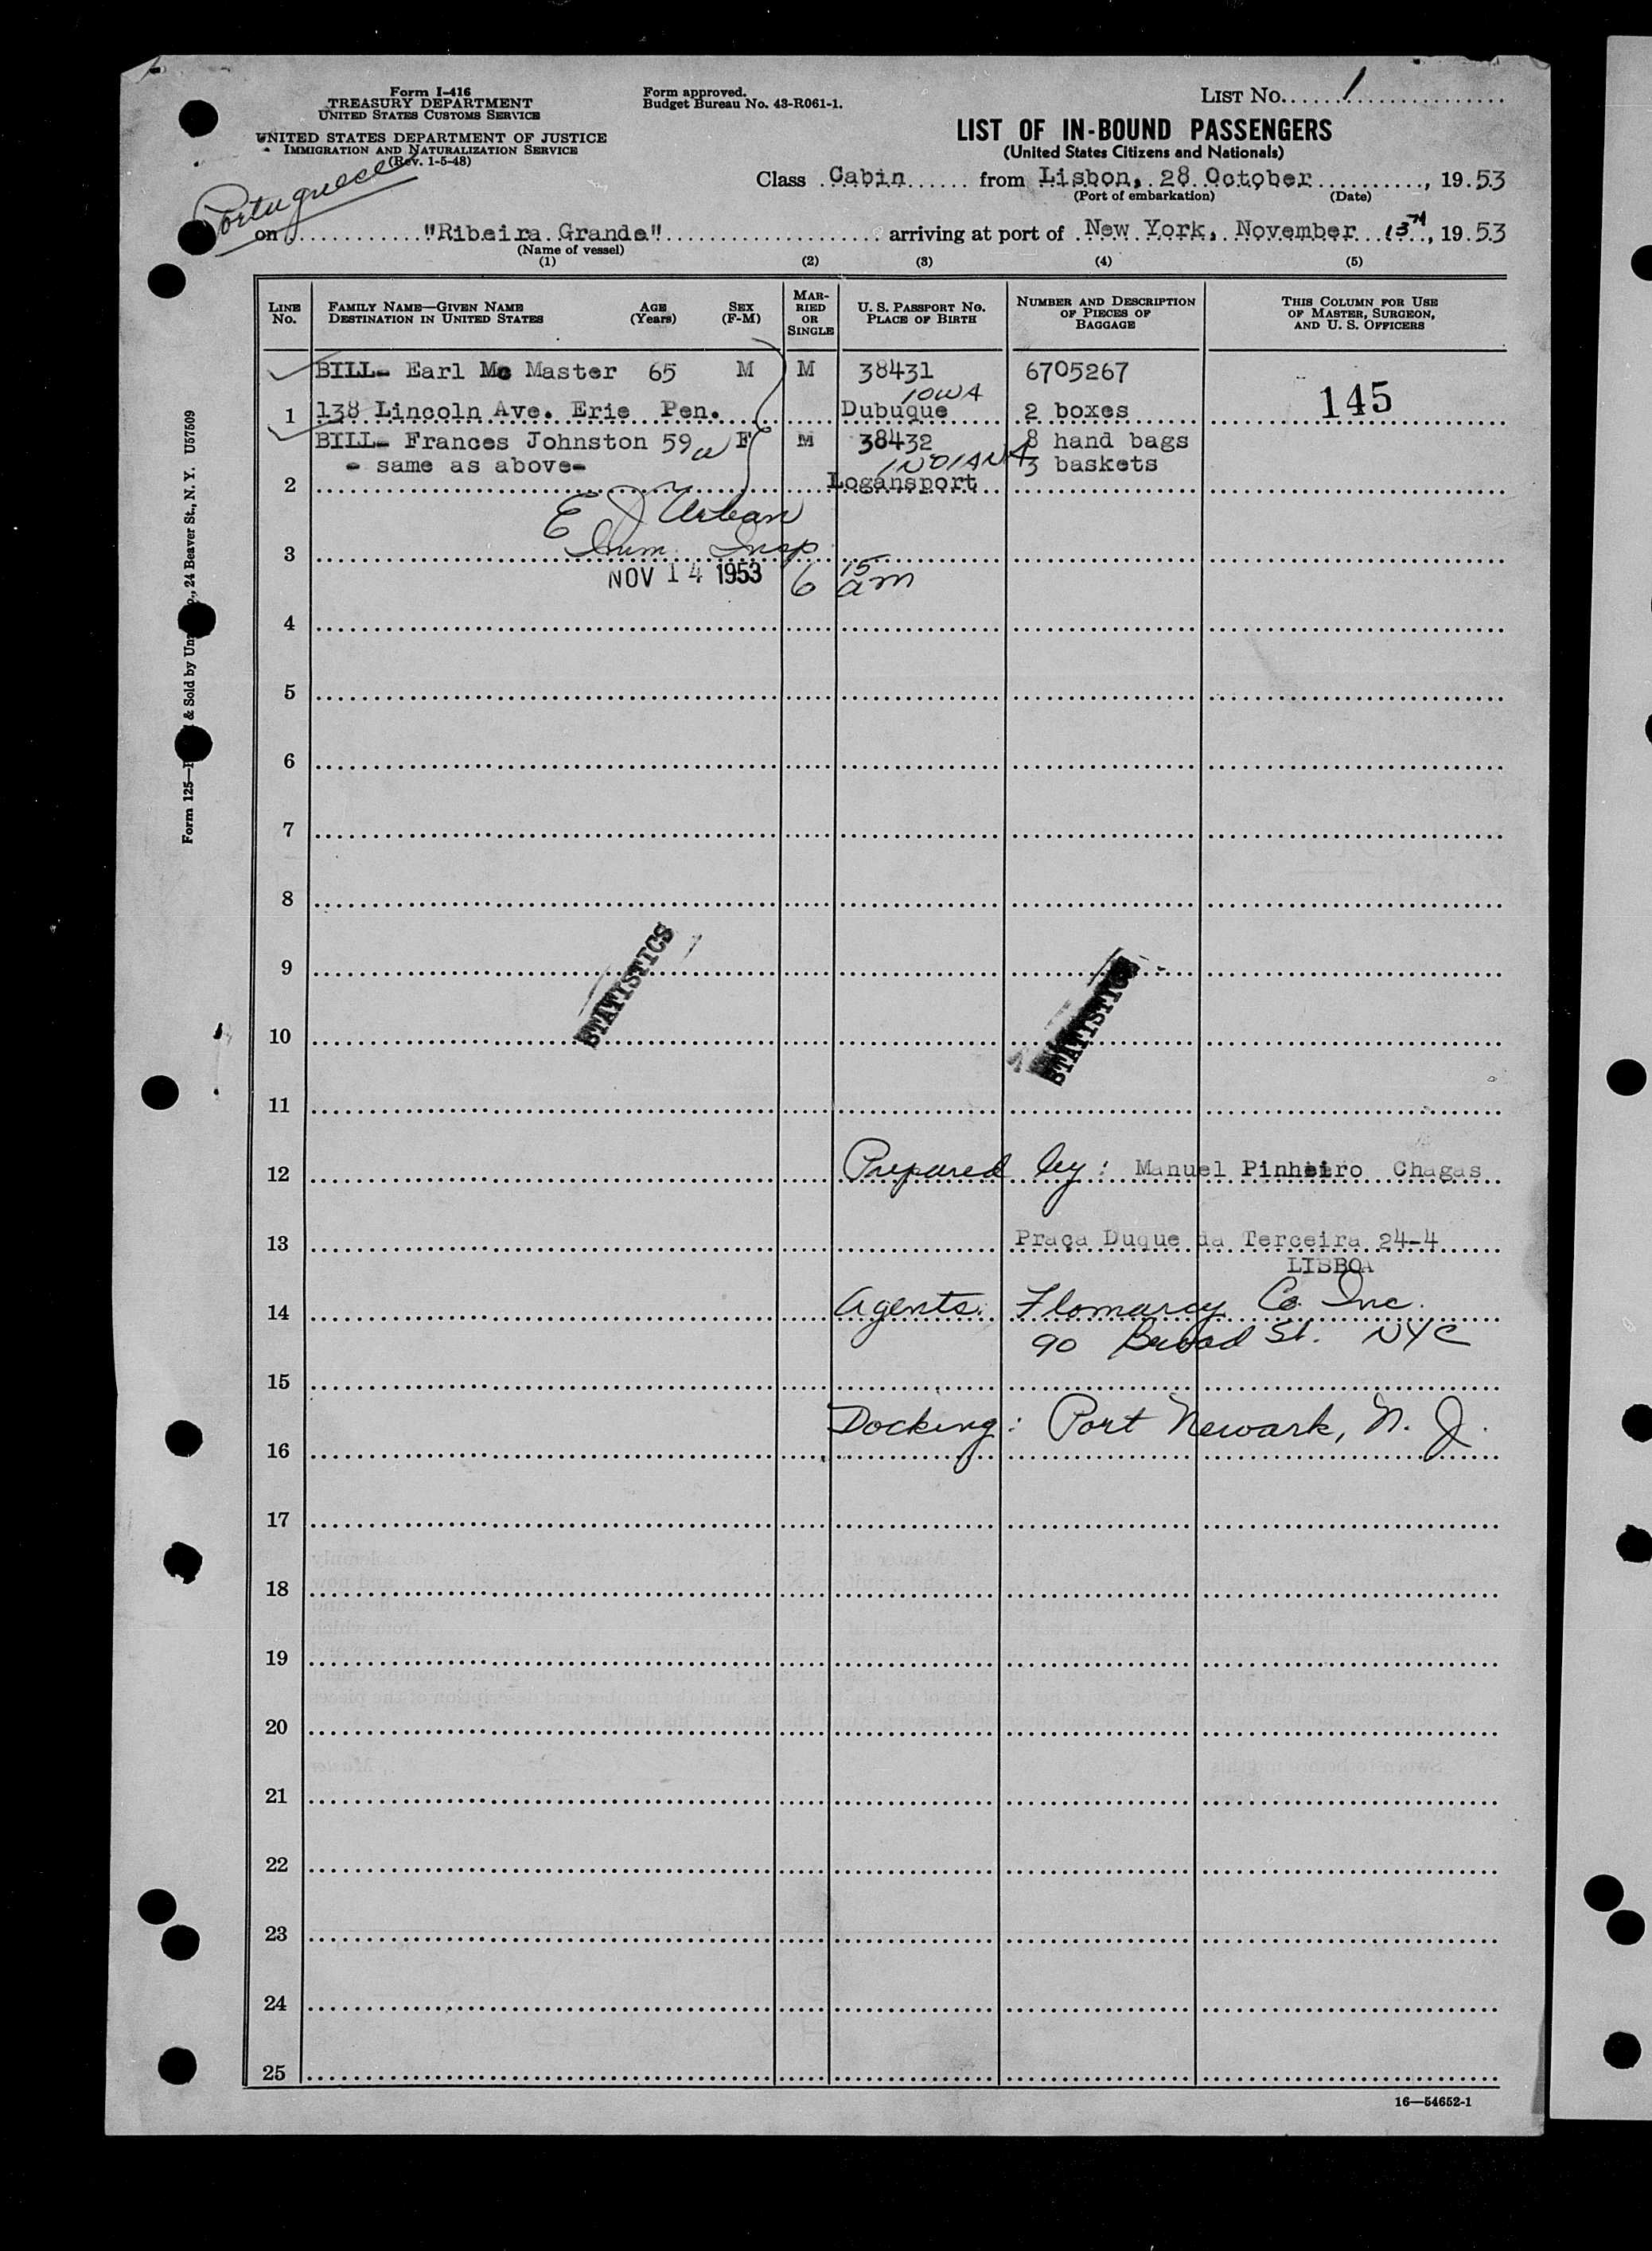 Form I-416
TREASURY DEPARTMENT
UNITED STATES CUSTOMS SERVICE
UNITED STATES DEPARTMENT OF JUSTICE
IMMIGRATION AND NATURALIZATION SERVICE
(Rev. 1-5-48)
Form approved.
Budget Bureau No. 43-R061-1.
LIST No. 1
LIST OF IN-BOUND PASSENGERS
(United States Citizens and Nationals)
Portuguese
Class Cabin from Lisbon, 28 October, 1953
(Port of embarkation) (Date)
on "Ribeira Grande" arriving at port of New York, November 13th, 1953
(Name of vessel)
(1) (2) (3) (4) (5)
LINE No. FAMILY NAME—GIVEN NAME DESTINATION IN UNITED STATES AGE (Years) SEX (F-M) MARRIED OR SINGLE U. S. PASSPORT NO. PLACE OF BIRTH NUMBER AND DESCRIPTION OF PIECES OF BAGGAGE THIS COLUMN FOR USE OF MASTER, SURGEON, AND U. S. OFFICERS
BILL- Earl Mc Master 65 M M 38431 6705267
IOWA
1 138 Lincoln Ave. Erie Pen. Dubuque 2 boxes 145
BILL- Frances Johnston 59 F M 38432 8 hand bags
- same as above- INDIANA 3 baskets
2 Logansport
E J Urban
3 Imm. Insp
NOV 14 1953 6 15 am
4
5
6
7
8
9
STATISTICS STATISTICS
10
11
12 Prepared by: Manuel Pinheiro Chagas
13 Praça Duque da Terceira 24-4
LISBOA
14 Agents: Flomarcy Co. Inc.
90 Broad St. NYC
15
Docking: Port Newark, N. J.
16
17
18
19
20
21
22
23
24
25
16—54652-1
Form 125— & Sold by , 24 Beaver St., N. Y. U57509